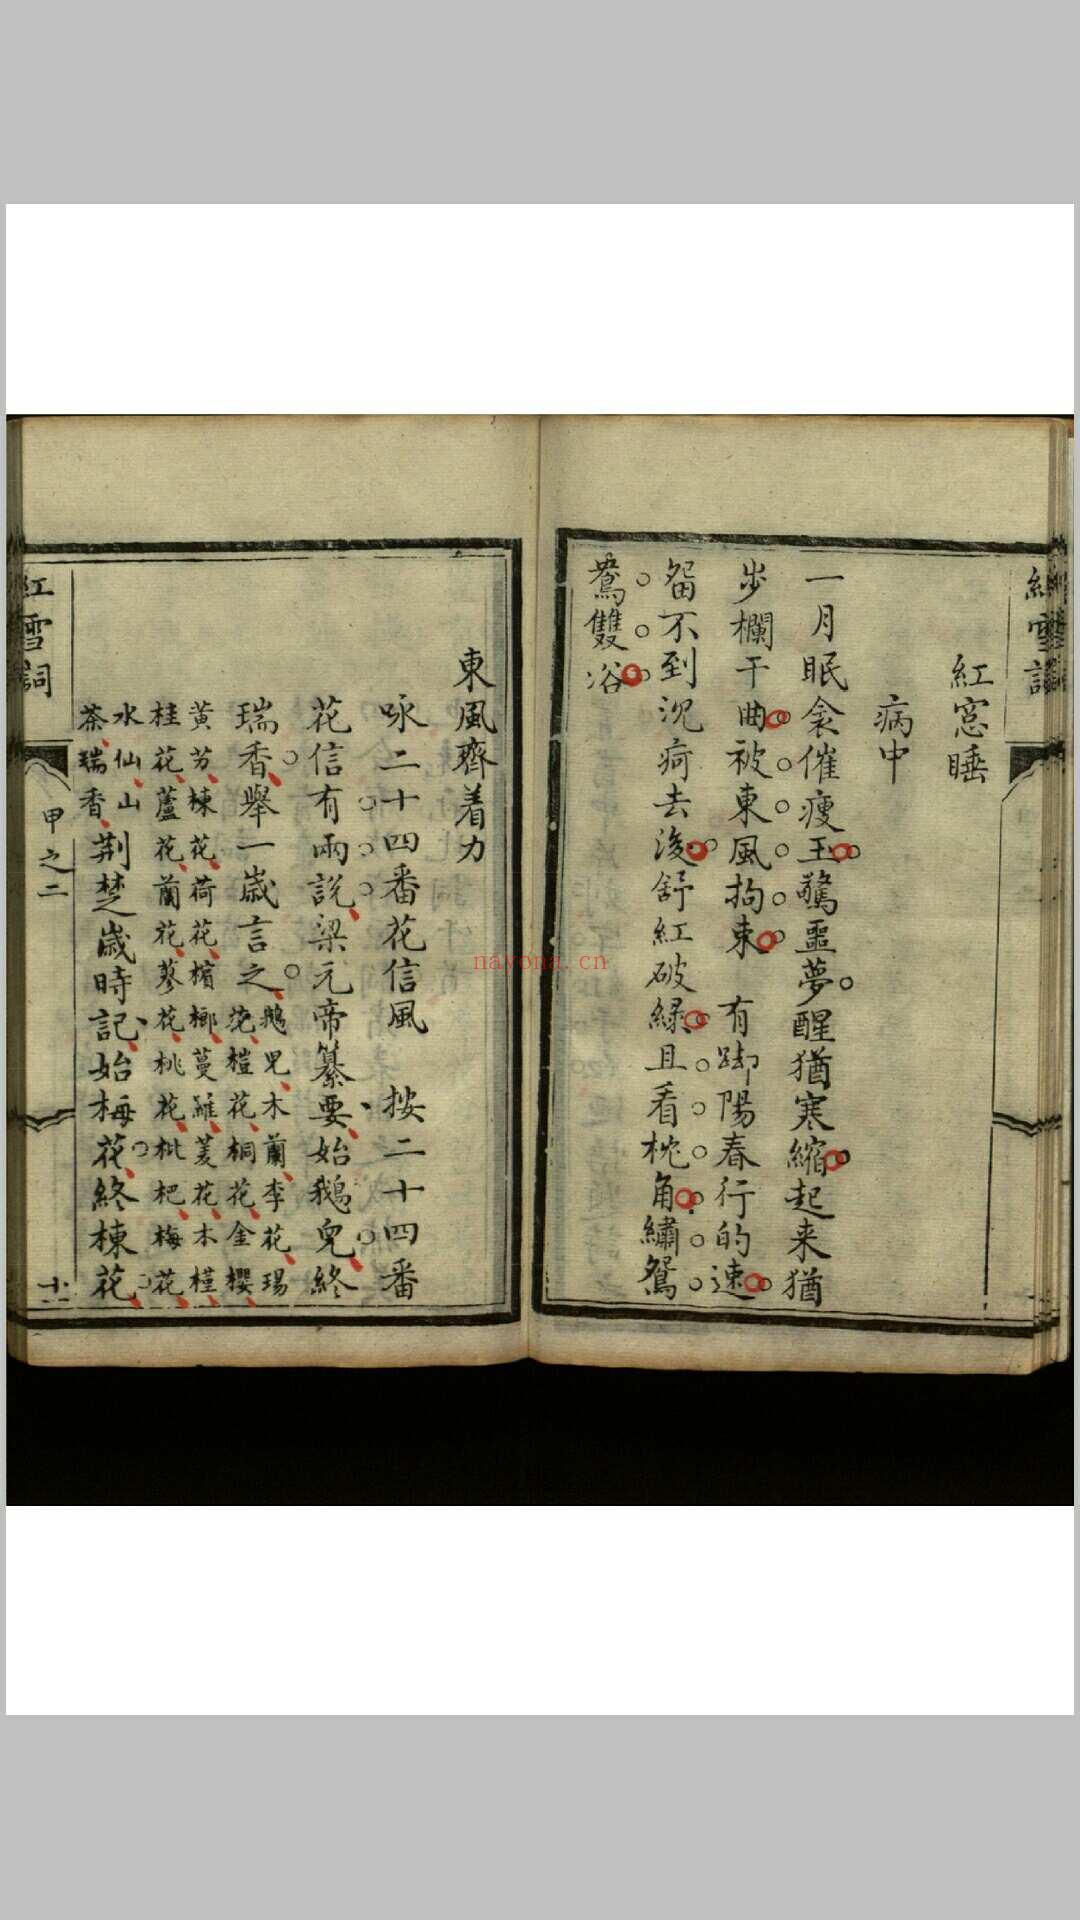 紅雪詞
紅窓睡
病中
一月眠衾催瘦玉驚噩夢醒猶寒縮起来猶
步欄干曲被東風拘束　有脚陽春行的速
畱不到沈疴去後舒紅破綠且看枕角繡鴛
鴦雙浴
東風齊着力
咏二十四番花信風　按二十四番
花信有兩說梁元帝纂要始鵝兒終
瑞香舉一歲言之
鵝兒木蘭李花瑒
花榿花桐花金櫻
黄芳楝花荷花檳榔蔓羅菱花木槿
桂花蘆花蘭花蓼花桃花枇杷梅花
水仙山
茶瑞香
荆楚歲時記始梅花終楝花
紅雪詞
甲之二
十一
nayona.cn